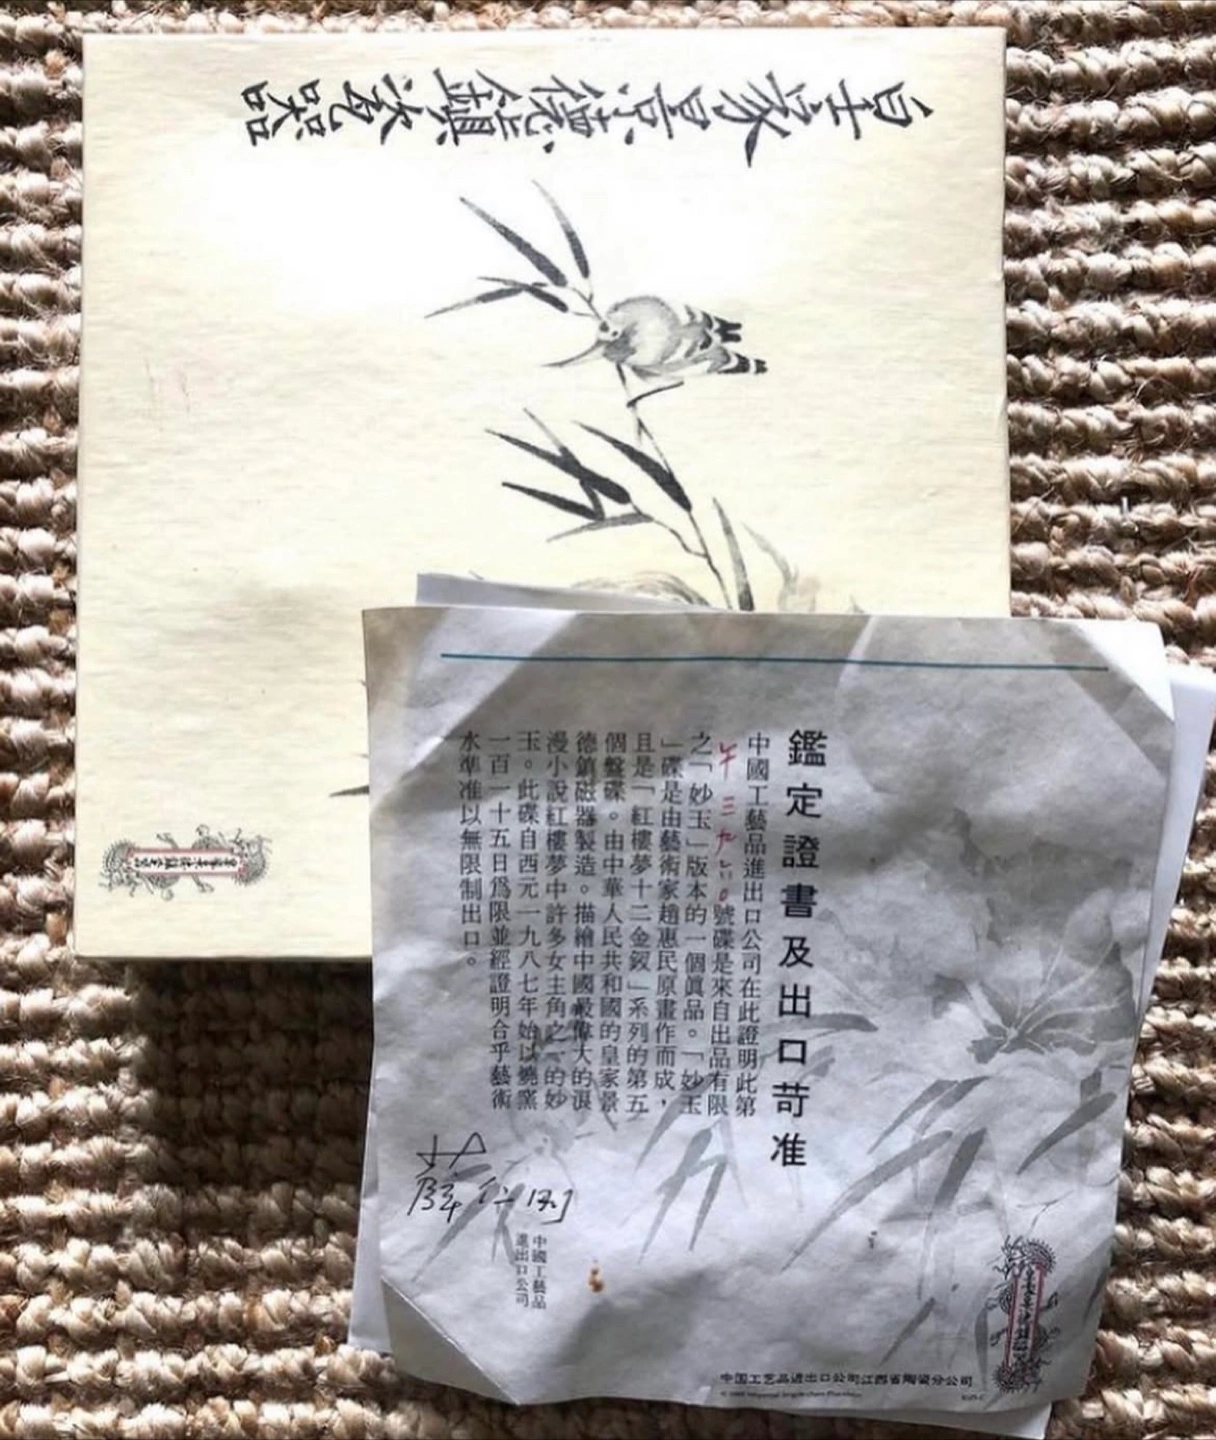 皇家景德鎮瓷器
鑑定證書及出口苛准
中國工藝品進出口公司在此證明此第
午三九六0號碟是來自出品有限
之「妙玉」版本的一個眞品。「妙玉
」碟是由藝術家趙惠民原畫作而成，
且是「紅樓夢十二金釵」系列的第五
個盤碟。由中華人民共和國的皇家景
德鎮磁器製造。描繪中國最偉大的浪
漫小說紅樓夢中許多女主角之一的妙
玉。此碟自西元一九八七年始以燒窯
一百一十五日爲限並經證明合乎藝術
水準准以無限制出口。
中國工藝品
進出口公司
中国工艺品进出口公司江西省陶瓷分公司